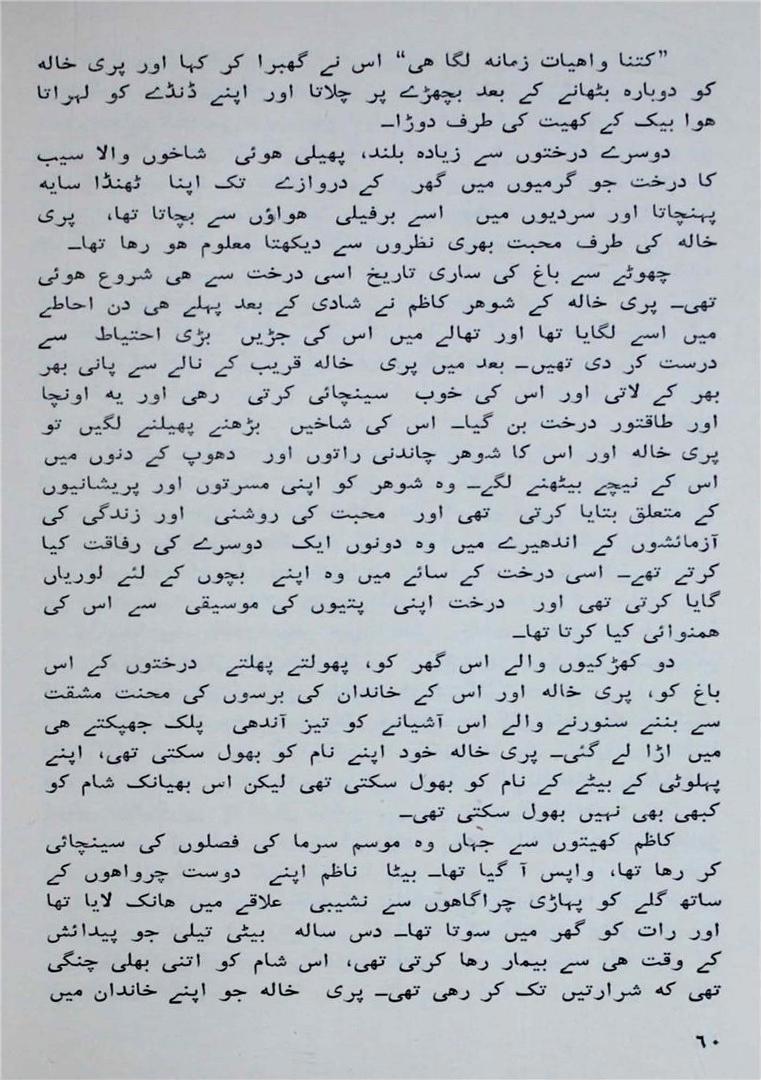 ”کتنا واهیات زمانه لگا هی“ اس نے گھبرا کر کہا اور پری خاله
کو دوبارہ بٹھانے کے بعد بچھڑے پر چلاتا اور اپنے ڈنڈے کو لہراتا
هوا بیک کے کھیت کی طرف دوڑا۔
دوسرے درختوں سے زیادہ بلند، پھیلی هوئی شاخوں والا سیب
کا درخت جو گرمیوں میں گھر کے دروازے تک اپنا ٹھنڈا سایه
پہنچاتا اور سردیوں میں اسے برفیلی هواؤں سے بچاتا تھا، پری
خاله کی طرف محبت بھری نظروں سے دیکھتا معلوم هو رها تھا۔
چھوٹے سے باغ کی ساری تاریخ اسی درخت سے هی شروع هوئی
تھی۔ پری خاله کے شوهر کاظم نے شادی کے بعد پہلے هی دن احاطے
میں اسے لگایا تھا اور تھالے میں اس کی جڑیں بڑی احتیاط سے
درست کر دی تھیں۔ بعد میں پری خاله قریب کے نالے سے پانی بھر
بھر کے لاتی اور اس کی خوب سینچائی کرتی رهی اور یه اونچا
اور طاقتور درخت بن گیا۔ اس کی شاخیں بڑھنے پھیلنے لگیں تو
پری خاله اور اس کا شوهر چاندنی راتوں اور دھوپ کے دنوں میں
اس کے نیچے بیٹھنے لگے۔ وه شوهر کو اپنی مسرتوں اور پریشانیوں
کے متعلق بتایا کرتی تھی اور محبت کی روشنی اور زندگی کی
آزمائشوں کے اندھیرے میں وه دونوں ایک دوسرے کی رفاقت کیا
کرتے تھے۔ اسی درخت کے سائے میں وه اپنے بچوں کے لئے لوریاں
گایا کرتی تھی اور درخت اپنی پتیوں کی موسیقی سے اس کی
همنوائی کیا کرتا تھا۔
دو کھڑکیوں والے اس گھر کو، پھولتے پھلتے درختوں کے اس
باغ کو، پری خاله اور اس کے خاندان کی برسوں کی محنت مشقت
سے بننے سنورنے والے اس آشیانے کو تیز آندھی پلک جھپکتے هی
میں اڑا لے گئی۔ پری خاله خود اپنے نام کو بھول سکتی تھی، اپنے
پہلوٹی کے بیٹے کے نام کو بھول سکتی تھی لیکن اس بھیانک شام کو
کبھی بھی نہیں بھول سکتی تھی۔
کاظم کھیتوں سے جہاں وه موسم سرما کی فصلوں کی سینچائی
کر رها تھا، واپس آ گیا تھا۔ بیٹا ناظم اپنے دوست چرواهوں کے
ساتھ گلے کو پہاڑی چراگاهوں سے نشیبی علاقے میں هانک لایا تھا
اور رات کو گھر میں سوتا تھا۔ دس ساله بیٹی تیلی جو پیدائش
کے وقت هی سے بیمار رها کرتی تھی، اس شام کو اتنی بھلی چنگی
تھی که شرارتیں تک کر رهی تھی۔ پری خاله جو اپنے خاندان میں
٦٠